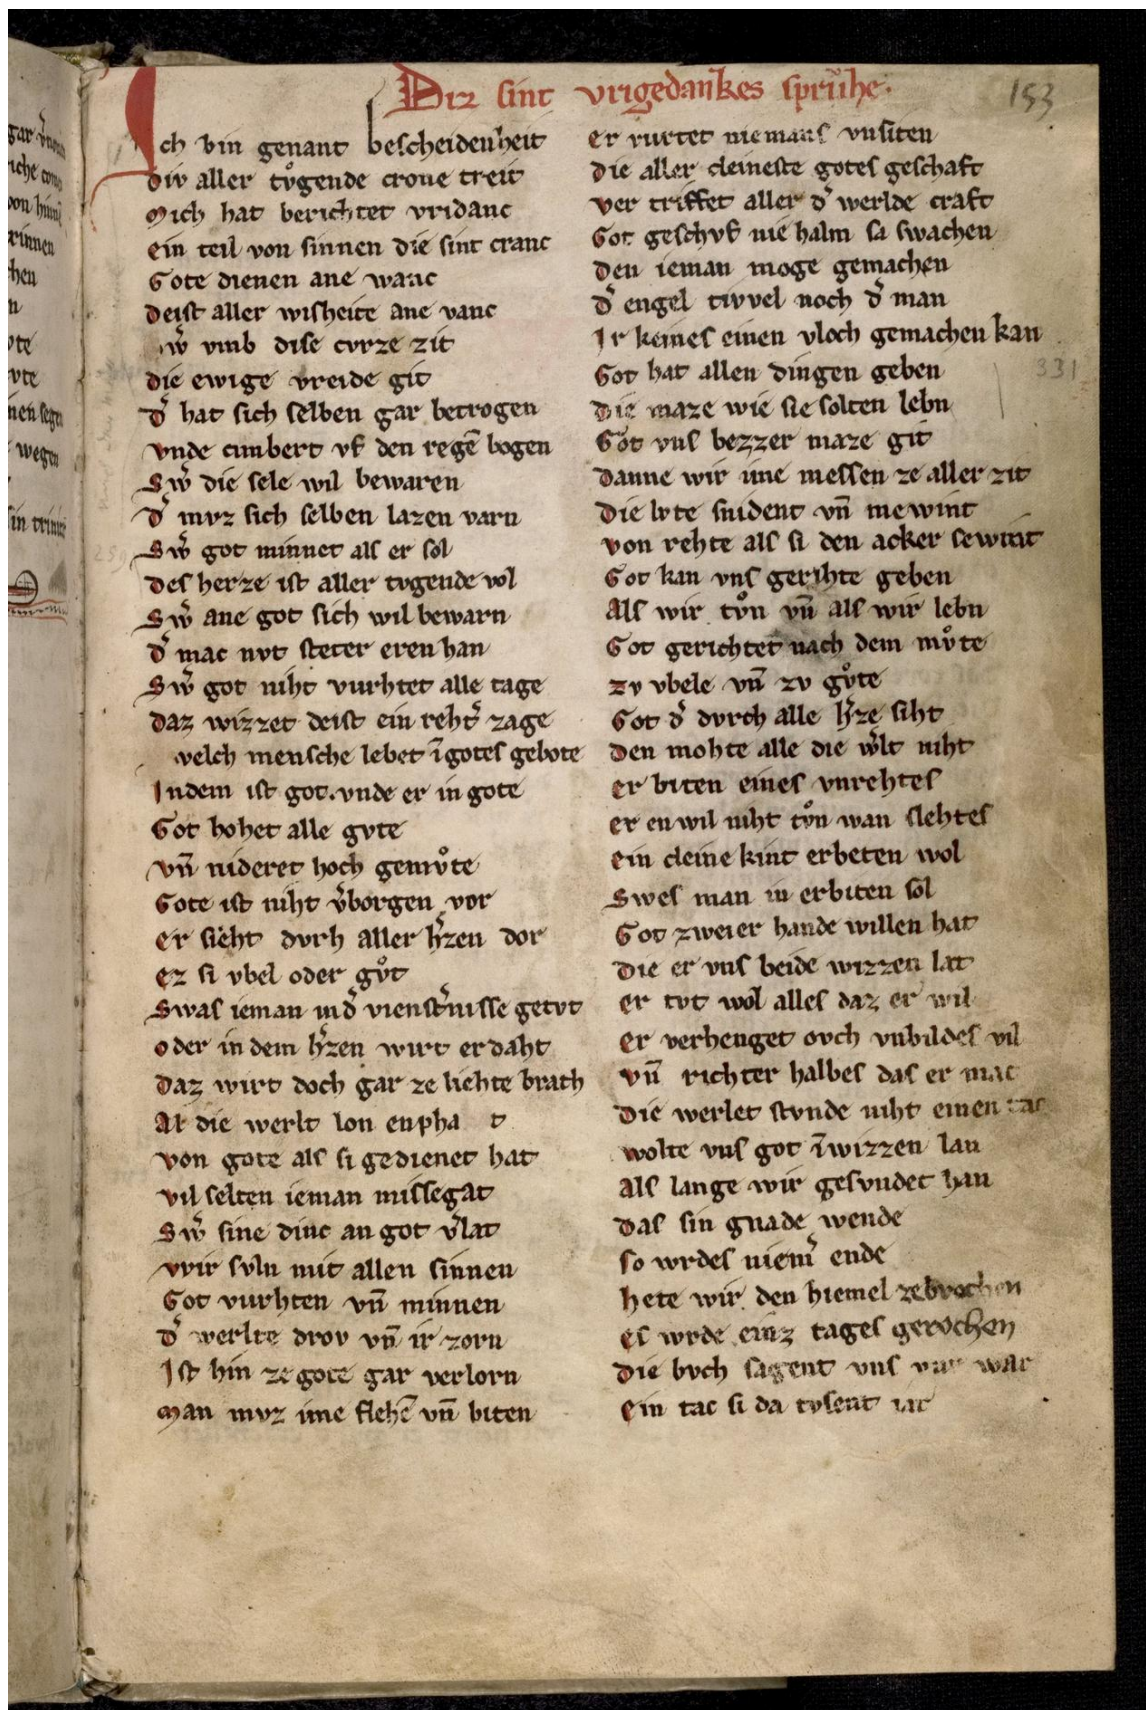 Diz sint vrigedankes sprùhe.
153
Ich bin genant bescheidenheit
div aller tvͦgende crone treit
Mich hat berichtet vridanc
ein teil von sinnen die sint cranc
Gote dienen ane wanc
Deist aller wisheite ane vanc
Sw̉ vmb dise cvrze zit
die ewige vreide git
D̉ hat sich selben gar betrogen
vnde cimbert vf den regē bogen
Sw̉ die sele wil bewaren
D̉ mvz sich selben lazen varn
Sw̉ got minnet als er sol
Des herze ist aller tvgende vol
Sw̉ ane got sich wil bewarn
D̉ mac nvt steter eren han
Sw̉ got niht vurhtet alle tage
Daz wizzet deist ein reht̉ zage
welch mensche lebet ī gotes gebote
Indem ist got. vnde er in gote
Got hohet alle gvte
vn̄ nideret hoch gemvͦte
Gote ist niht v̉borgen vor
Er sieht dvrh aller h̉zen dor
ez si vbel oder gvͦt
Swas ieman ind̉ vienst̉nisse getvt
oder in dem h̉zen wirt erdaht
Daz wirt doch gar ze liehte brath
Al die werlt lon enpha t
von gote als si gedienet hat
vil selten ieman missegat
Sw̉ sine dinc an got v̉lat
wir svln mit allen sinnen
Got vurhten vn̄ minnen
D̉ werlte drov vn̄ ir zorn
Ist hin ze gote gar verlorn
Man mvz ime flehē vn̄ biten
er vurtet niemans vnsiten
die aller cleineste gotes geschaft
ver triffet aller d̉ werlde craft
Got geschvf nie halm sa swachen
den ieman moge gemachen
D̉ engel tivvel noch d̉ man
Ir keines einen vloch gemachen kan
Got hat allen dingen geben
331
die maze wie sie solten lebn
Got vns bezzer maze git
danne wir ime messen ze aller zit
die lvte snident vn̄ mewint
von rehte als si den acker sewint
Got kan vns gerihte geben
Als wir tvͦn vn̄ als wir lebn
Got gerichtet nach dem mvͦte
zv vbele vn̄ zv gvͦte
Got d̉ dvrch alle h̉ze siht
den mohte alle die w̉lt niht
er biten eines vnrehtes
er en wil niht tvͦn wan slehtes
ein cleine kint erbeten wol
Swes man in erbiten sol
Got zweier hande willen hat
die er vns beide wizzen lat
er tvt wol alles daz er wil
er verhenget ovch vnbildes vil
vn̄ richter halbes das er mac
die werlet stvnde niht einen tac
wolte vns got ī wizzen lan
Als lange wir gesvndet han
das sin gnade wende
so wrdes niem̉ ende
hete wir den hiemel zebrochen
es wrde einz tages gerochen
die bvch sagent vns vur war
Ein tac si da tvsent iar